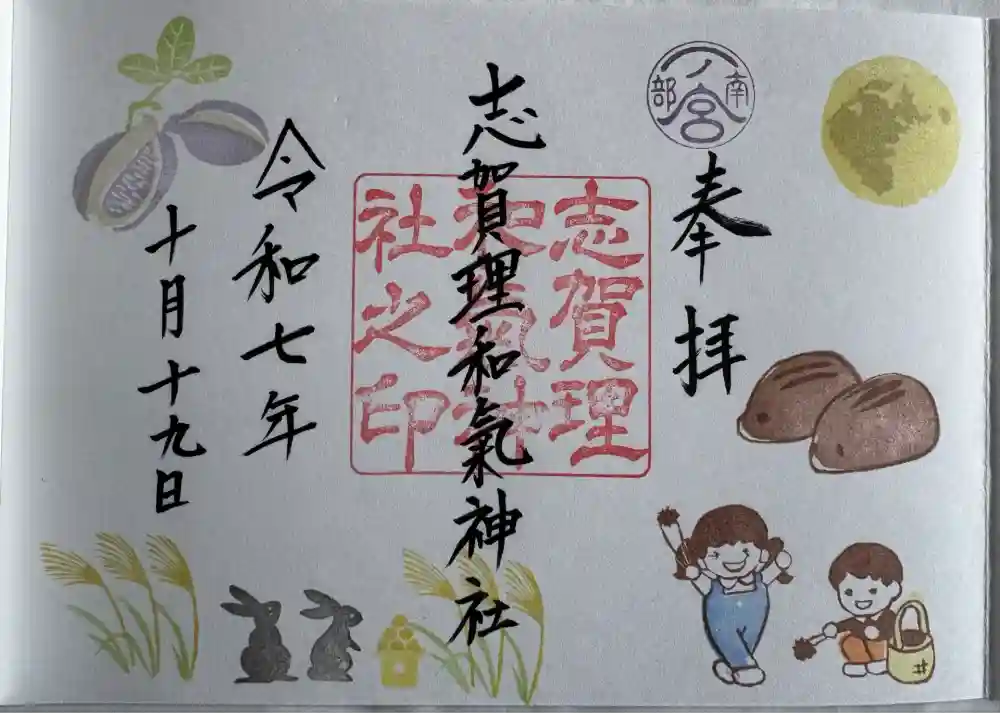 一ノ宮
南部
奉拝
志賀理和氣神社
志賀理
和氣神
社之印
令和七年
十月十九日